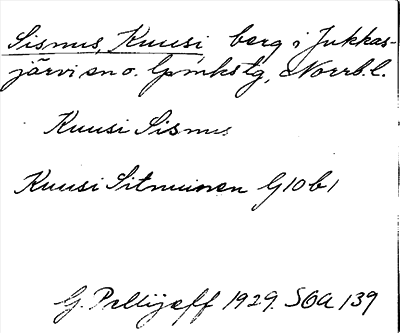 Sismus, Kuusi, berg i Jukkas-
järvi sn o. lpmkstg, Norrb. l.
Kuusi Sismus
Kuusi Sitmuinen G10b1
G. Pellijeff 1929. SOA 139